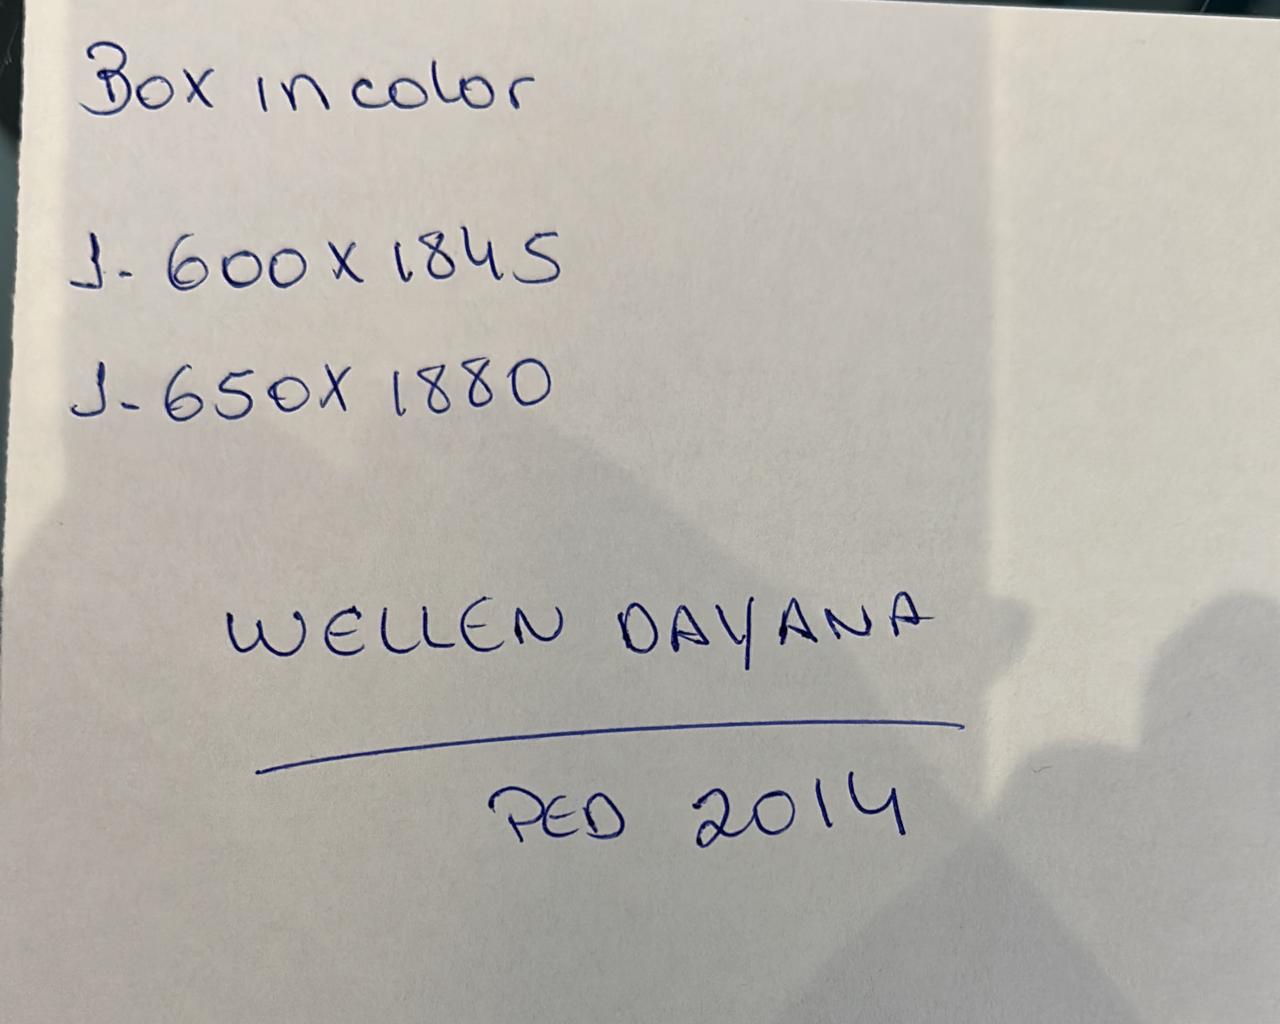 Box in color
1- 600 x 1845
1- 650 x 1880
WELLEN DAYANA
PED 2014